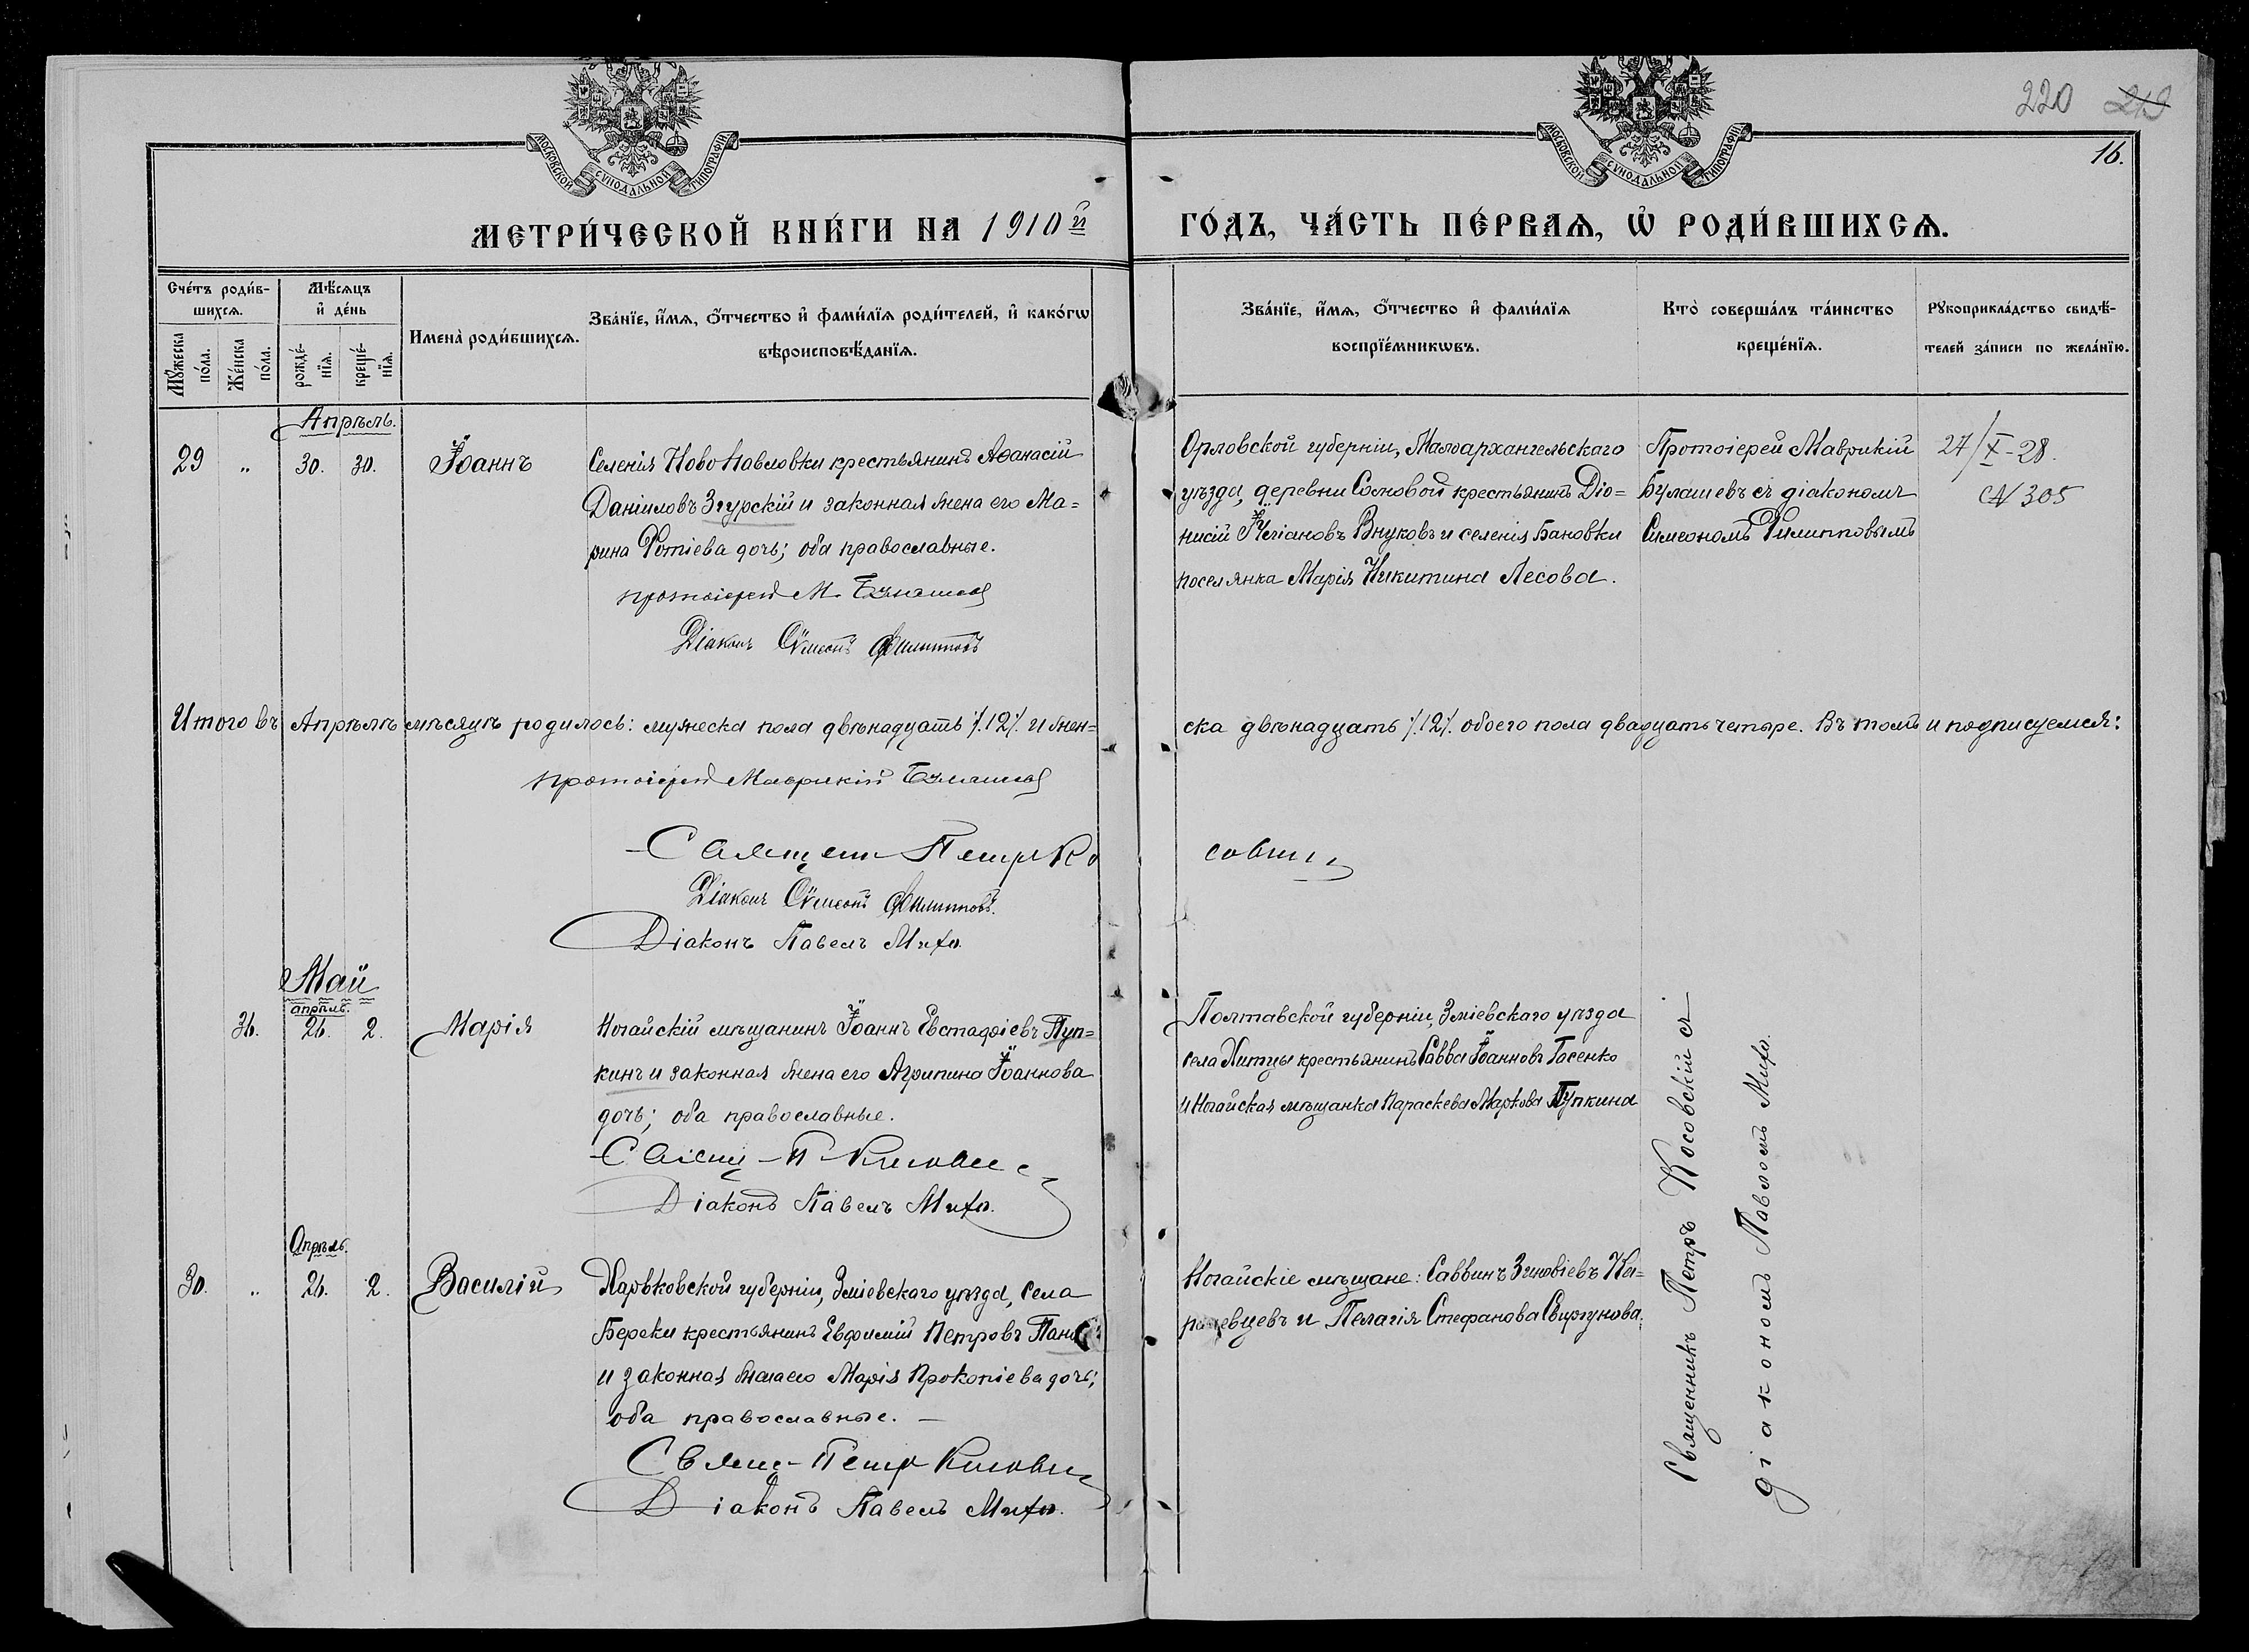 220 219
16.
МОСКОВСКОЙ СѴНОДАЛЬНОЙ ТИПОГРАФІИ
МОСКОВСКОЙ СѴНОДАЛЬНОЙ ТИПОГРАФІИ
МЕТРИ́ЧЕСКОЙ КНИ́ГИ НА 1910й ГО́ДЪ, ЧА́СТЬ ПЕ́РВАѦ, Ѡ҆ РОДИ́ВШИХСѦ.
Сче́тъ роди́в-
шихсѧ.
Мꙋ́жеска по́ла.
Же́нска по́ла.
Мѣ́сѧцъ
и҆ де́нь
рожде́-нїѧ.
креще́-нїѧ.
Имена̀ роди́вшихсѧ.
Зва́нїе, и҆́мѧ, ѻ҆́тчество и҆ фами́лїѧ роди́телей, и҆ како́гѡ
вѣроисповѣ́данїѧ.
Зва́нїе, и҆́мѧ, ѻ҆́тчество и҆ фами́лїѧ
воспрїе́мникѡвъ.
Кто̀ соверша́лъ та́инство
креще́нїѧ.
Рꙋкоприкла́дство свидѣ́-
телей за́писи по жела́нїю.
Апрѣль.
29 „ 30. 30. Іоаннъ
Селенія НовоПавловки крестьянинъ Аѳанасій
Даніиловъ Згурскій и законная жена его Ма=
рина Фотіева дочь; оба православные.
протоіерей М. Булашевъ
Діаконъ Сѵмеонъ Филипповъ
Орловской губерніи, Малоархангельскаго
уѣзда, деревни Сосновой крестьянинъ Діо=
нисій Внуковъ и селенія Бановки
поселянка Марія Никитина Лесова.
Протоіерей Маврикій
Булашевъ съ діакономъ
Симеономъ Филипповымъ
27/X-28.
N 305
Итого въ Апрѣлѣ мѣсяцѣ родилось: мужеска пола двѣнадцать /.12/. и жен=ска двѣнадцать /.12/. обоего пола двадцать четыре. Въ томъ и подписуемся:
протоіерей Маврикій Булашевъ
Священ Петръ Косовский
Діаконъ Сѵмеонъ Филипповъ.
Діаконъ Павелъ Михо.
Май
апрѣль.
36. 26. 2. Марія
Ногайскій мѣщанинъ Іоаннъ Евстафіевъ Пуп=
кинъ и законная жена его Агрипина Іоаннова
дочь; оба православные.
Свящ П Косовский
Діаконъ Павелъ Михо.
Полтавской губерніи, Зміевскаго уѣзда
села Хитцы крестьянинъ Савва Іоанновъ Гасенко
и Ногайская мѣщанка Параскева Маркова Пупкина
Священникъ Петръ Косовскій съ
діакономъ Павломъ Михо.
Апрѣль.
30. „ 26. 2. Василій
Харьковской губерніи, Зміевскаго уѣзда, села
Береки крестьянинъ Евфимій Петровъ
и законная жена его Марія Прокопіева дочь;
оба православные. —
Свящ- Петр Косовский
Діаконъ Павелъ Михо.
Ногайскіе мѣщане: Саввинъ Зиновіевъ
и Пелагія Стефанова Свиргунова.